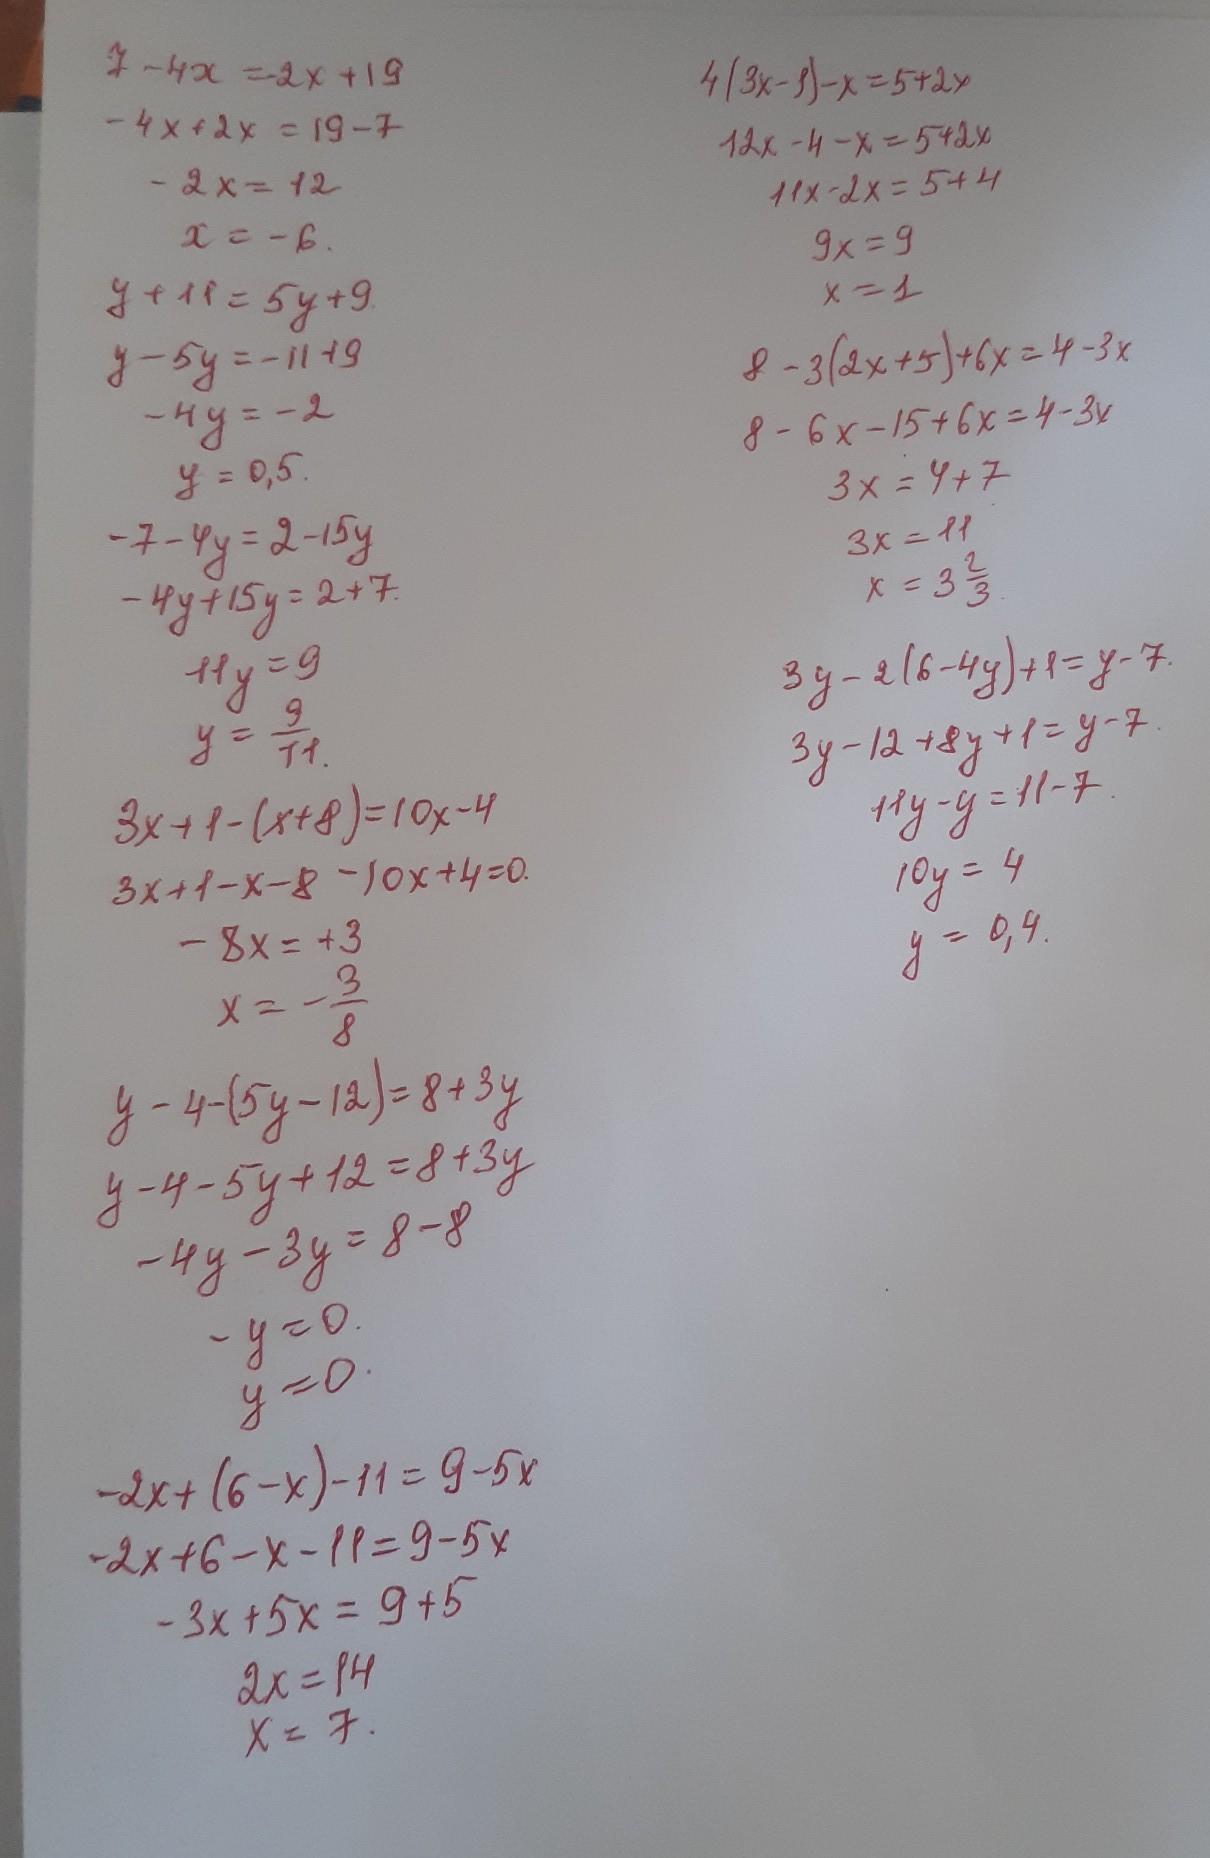 7 - 4x = -2x + 19
-4x + 2x = 19 - 7
- 2x = 12
x = -6.
y + 11 = 5y + 9.
y - 5y = -11 + 9
-4y = -2
y = 0,5.
-7 - 4y = 2 - 15y
-4y + 15y = 2 + 7.
11y = 9
y = 9/11.
3x + 1 - (x + 8) = 10x - 4
3x + 1 - x - 8 - 10x + 4 = 0.
- 8x = +3
x = - 3/8
y - 4 - (5y - 12) = 8 + 3y
y - 4 - 5y + 12 = 8 + 3y
-4y - 3y = 8 - 8
- y = 0.
y = 0.
-2x + (6 - x) - 11 = 9 - 5x
-2x + 6 - x - 11 = 9 - 5x
-3x + 5x = 9 + 5
2x = 14
x = 7.
4(3x - 1) - x = 5 + 2x
12x - 4 - x = 5 + 2x
11x - 2x = 5 + 4
9x = 9
x = 1
8 - 3(2x + 5) + 6x = 4 - 3x
8 - 6x - 15 + 6x = 4 - 3x
3x = 4 + 7
3x = 11
x = 3 2/3.
3y - 2(6 - 4y) + 1 = y - 7.
3y - 12 + 8y + 1 = y - 7.
11y - y = 11 - 7.
10y = 4
y = 0,4.